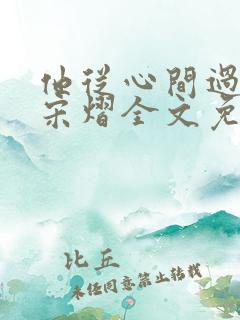 他從心間過
宋熠全文免
比丘
未任同意禁止转载